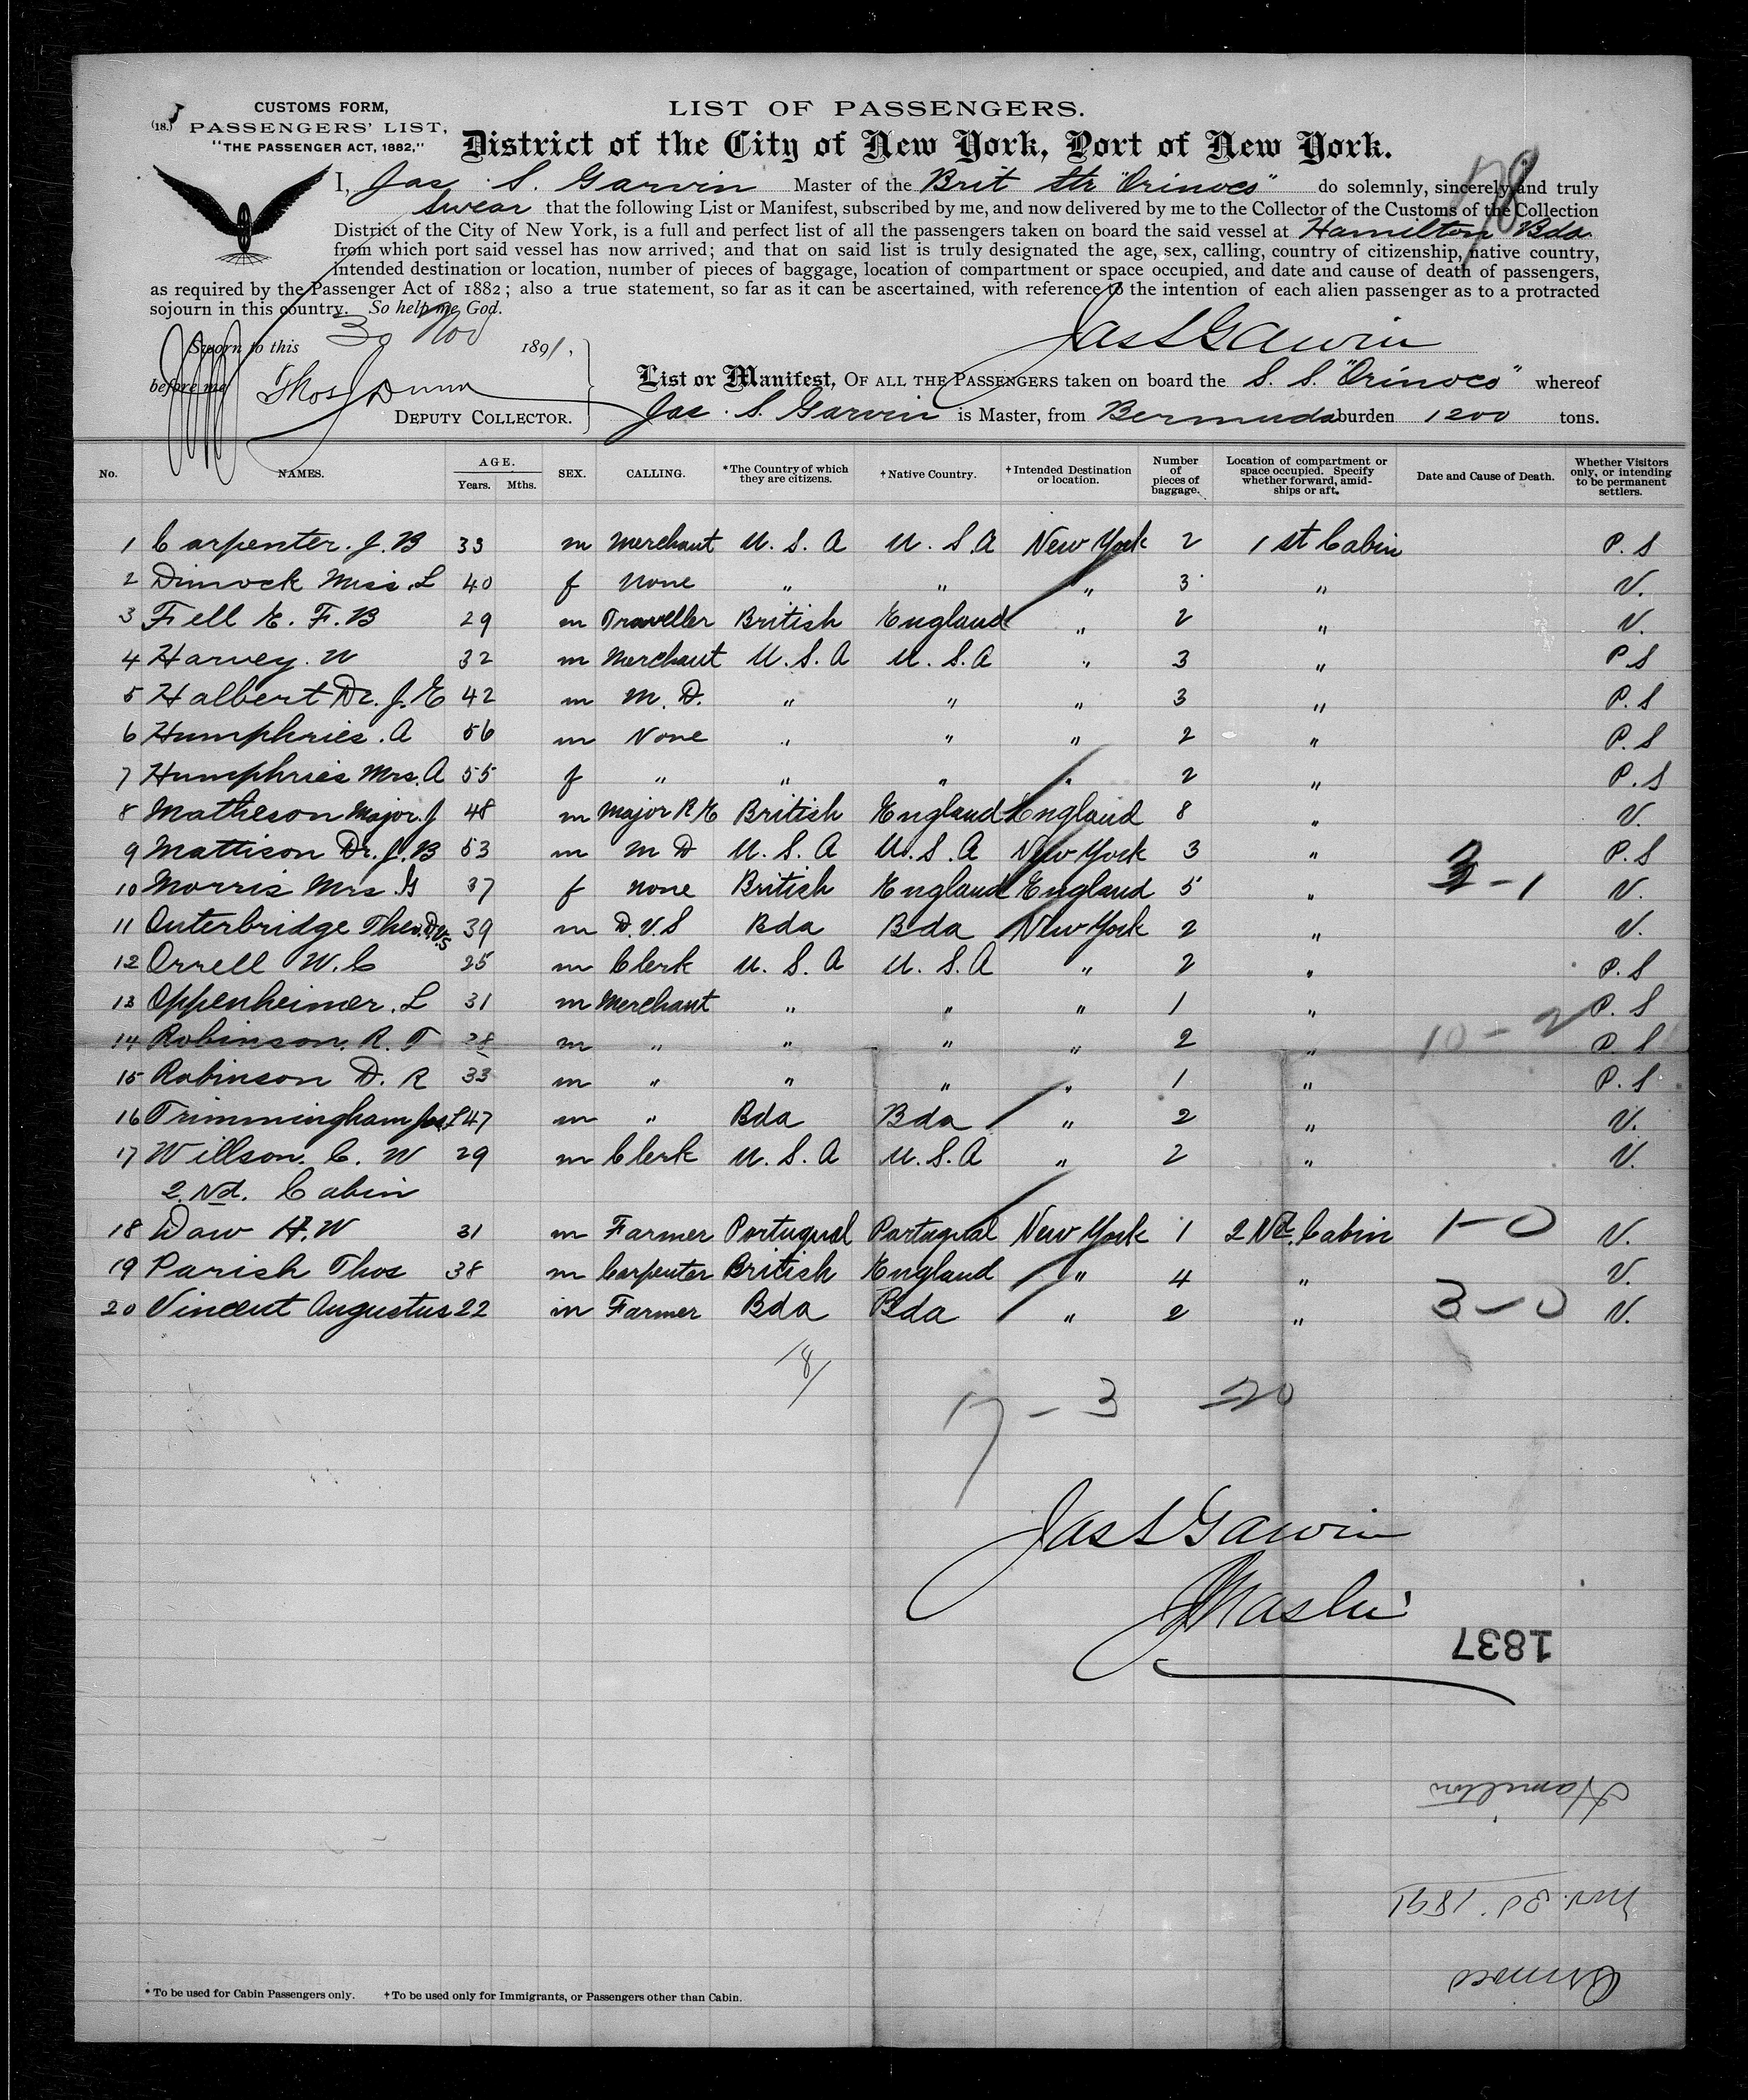 CUSTOMS FORM,
(18.) PASSENGERS' LIST,
"THE PASSENGER ACT, 1882,"
LIST OF PASSENGERS.
District of the City of New York, Port of New York.
I, Jas. S. Garvin Master of the Brit Str "Orinoco" do solemnly, sincerely and truly
swear that the following List or Manifest, subscribed by me, and now delivered by me to the Collector of the Customs of the Collection
District of the City of New York, is a full and perfect list of all the passengers taken on board the said vessel at Hamilton Bda
from which port said vessel has now arrived; and that on said list is truly designated the age, sex, calling, country of citizenship, native country,
intended destination or location, number of pieces of baggage, location of compartment or space occupied, and date and cause of death of passengers,
as required by the Passenger Act of 1882; also a true statement, so far as it can be ascertained, with reference to the intention of each alien passenger as to a protracted
sojourn in this country. So help me God.
Jas S Garvin
Sworn to this 30 Nov 1891,
before me Thos J Dunn
DEPUTY COLLECTOR.
List or Manifest, OF ALL THE PASSENGERS taken on board the S. S. "Orinoco" whereof
Jas. S. Garvin is Master, from Bermuda burden 1200 tons.
No. NAMES. AGE. Years. Mths. SEX. CALLING. *The Country of which they are citizens. †Native Country. †Intended Destination or location. Number of pieces of baggage. Location of compartment or space occupied. Specify whether forward, amidships or aft. Date and Cause of Death. Whether Visitors only, or intending to be permanent settlers.
1 Carpenter. J. B 33 m Merchant U. S. A U. S. A New York 2 1st Cabin P. S
2 Dimock Miss. L 40 f None " " " 3 " V.
3 Fell E. F. B 29 m Traveller British England " 2 " V.
4 Harvey. W 32 m Merchant U. S. A U. S. A " 3 " P S
5 Halbert Dr. J. E 42 m M. D. " " " 3 " P. S
6 Humphries. A 56 m None " " " 2 " P. S
7 Humphries Mrs. A 55 f " " " " 2 " P. S
8 Matheson Major. J 48 m Major R E British England England 8 " V.
9 Mattison Dr. J. B 53 m M D U. S. A U. S. A New York 3 " P. S
10 Morris Mrs G 37 f None British England England 5 " 3-1 V.
11 Outerbridge Theo. DVS 39 m D. V. S Bda Bda New York 2 " V.
12 Orrell W. C 25 m Clerk U. S. A U. S. A " 2 " P. S
13 Oppenheimer. L 31 m Merchant " " " 1 " P. S
14 Robinson. R. T 28 m " " " " 2 " 10-2 P. S
15 Robinson D. R 33 m " " " " 1 " P. S
16 Trimmingham Jas. L 47 m " Bda Bda " 2 " V.
17 Willson. C. W 29 m Clerk U. S. A U. S. A " 2 " V.
2.Nd. Cabin
18 Daw H. W 31 m Farmer Portugual Portugual New York 1 2 Nd. Cabin 1-0 V.
19 Parish Thos 38 m Carpenter British England " 4 " V.
20 Vincent Augustus 22 m Farmer Bda Bda " 2 " 3-0 V.
18/
17 - 3 = 20
Jas S Garvin
Master
1837
Hamilton
Nov. 30. 1891
Orinoco
* To be used for Cabin Passengers only. † To be used only for Immigrants, or Passengers other than Cabin.